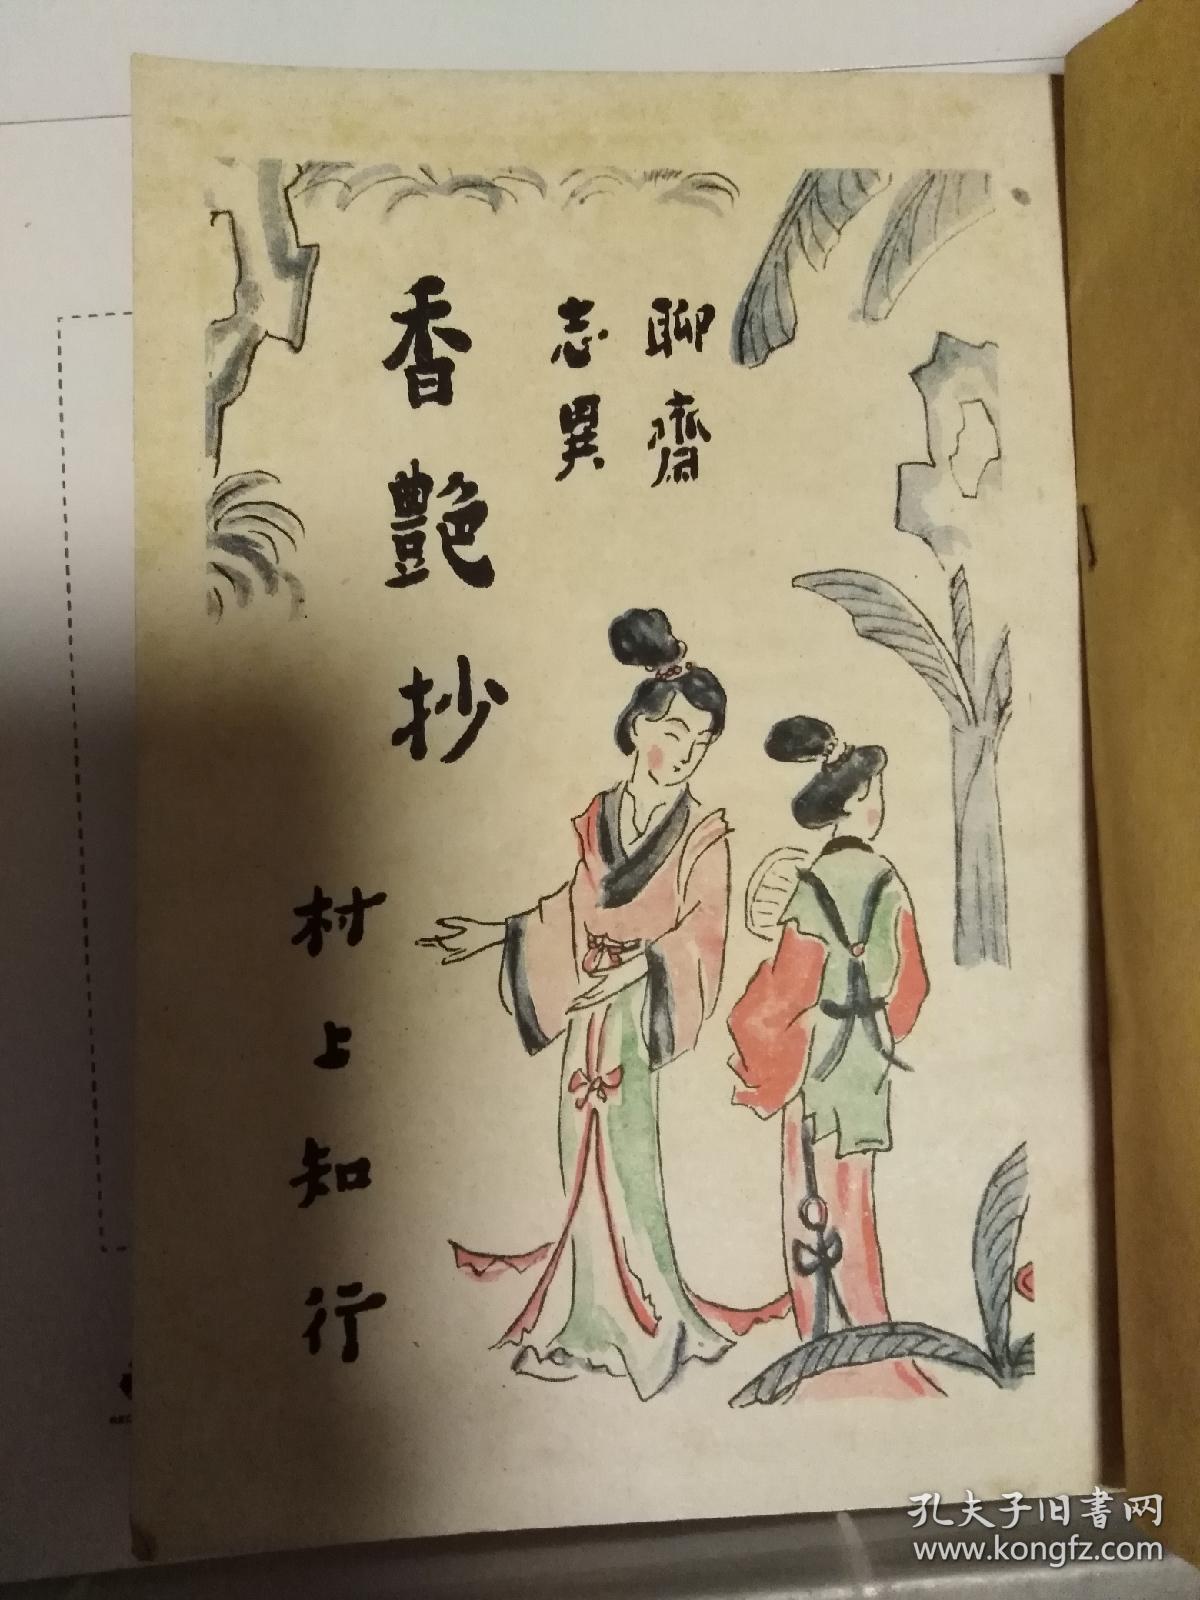 聊齋
志異
香艶抄
村上知行
孔夫子旧書网
www.kongfz.com